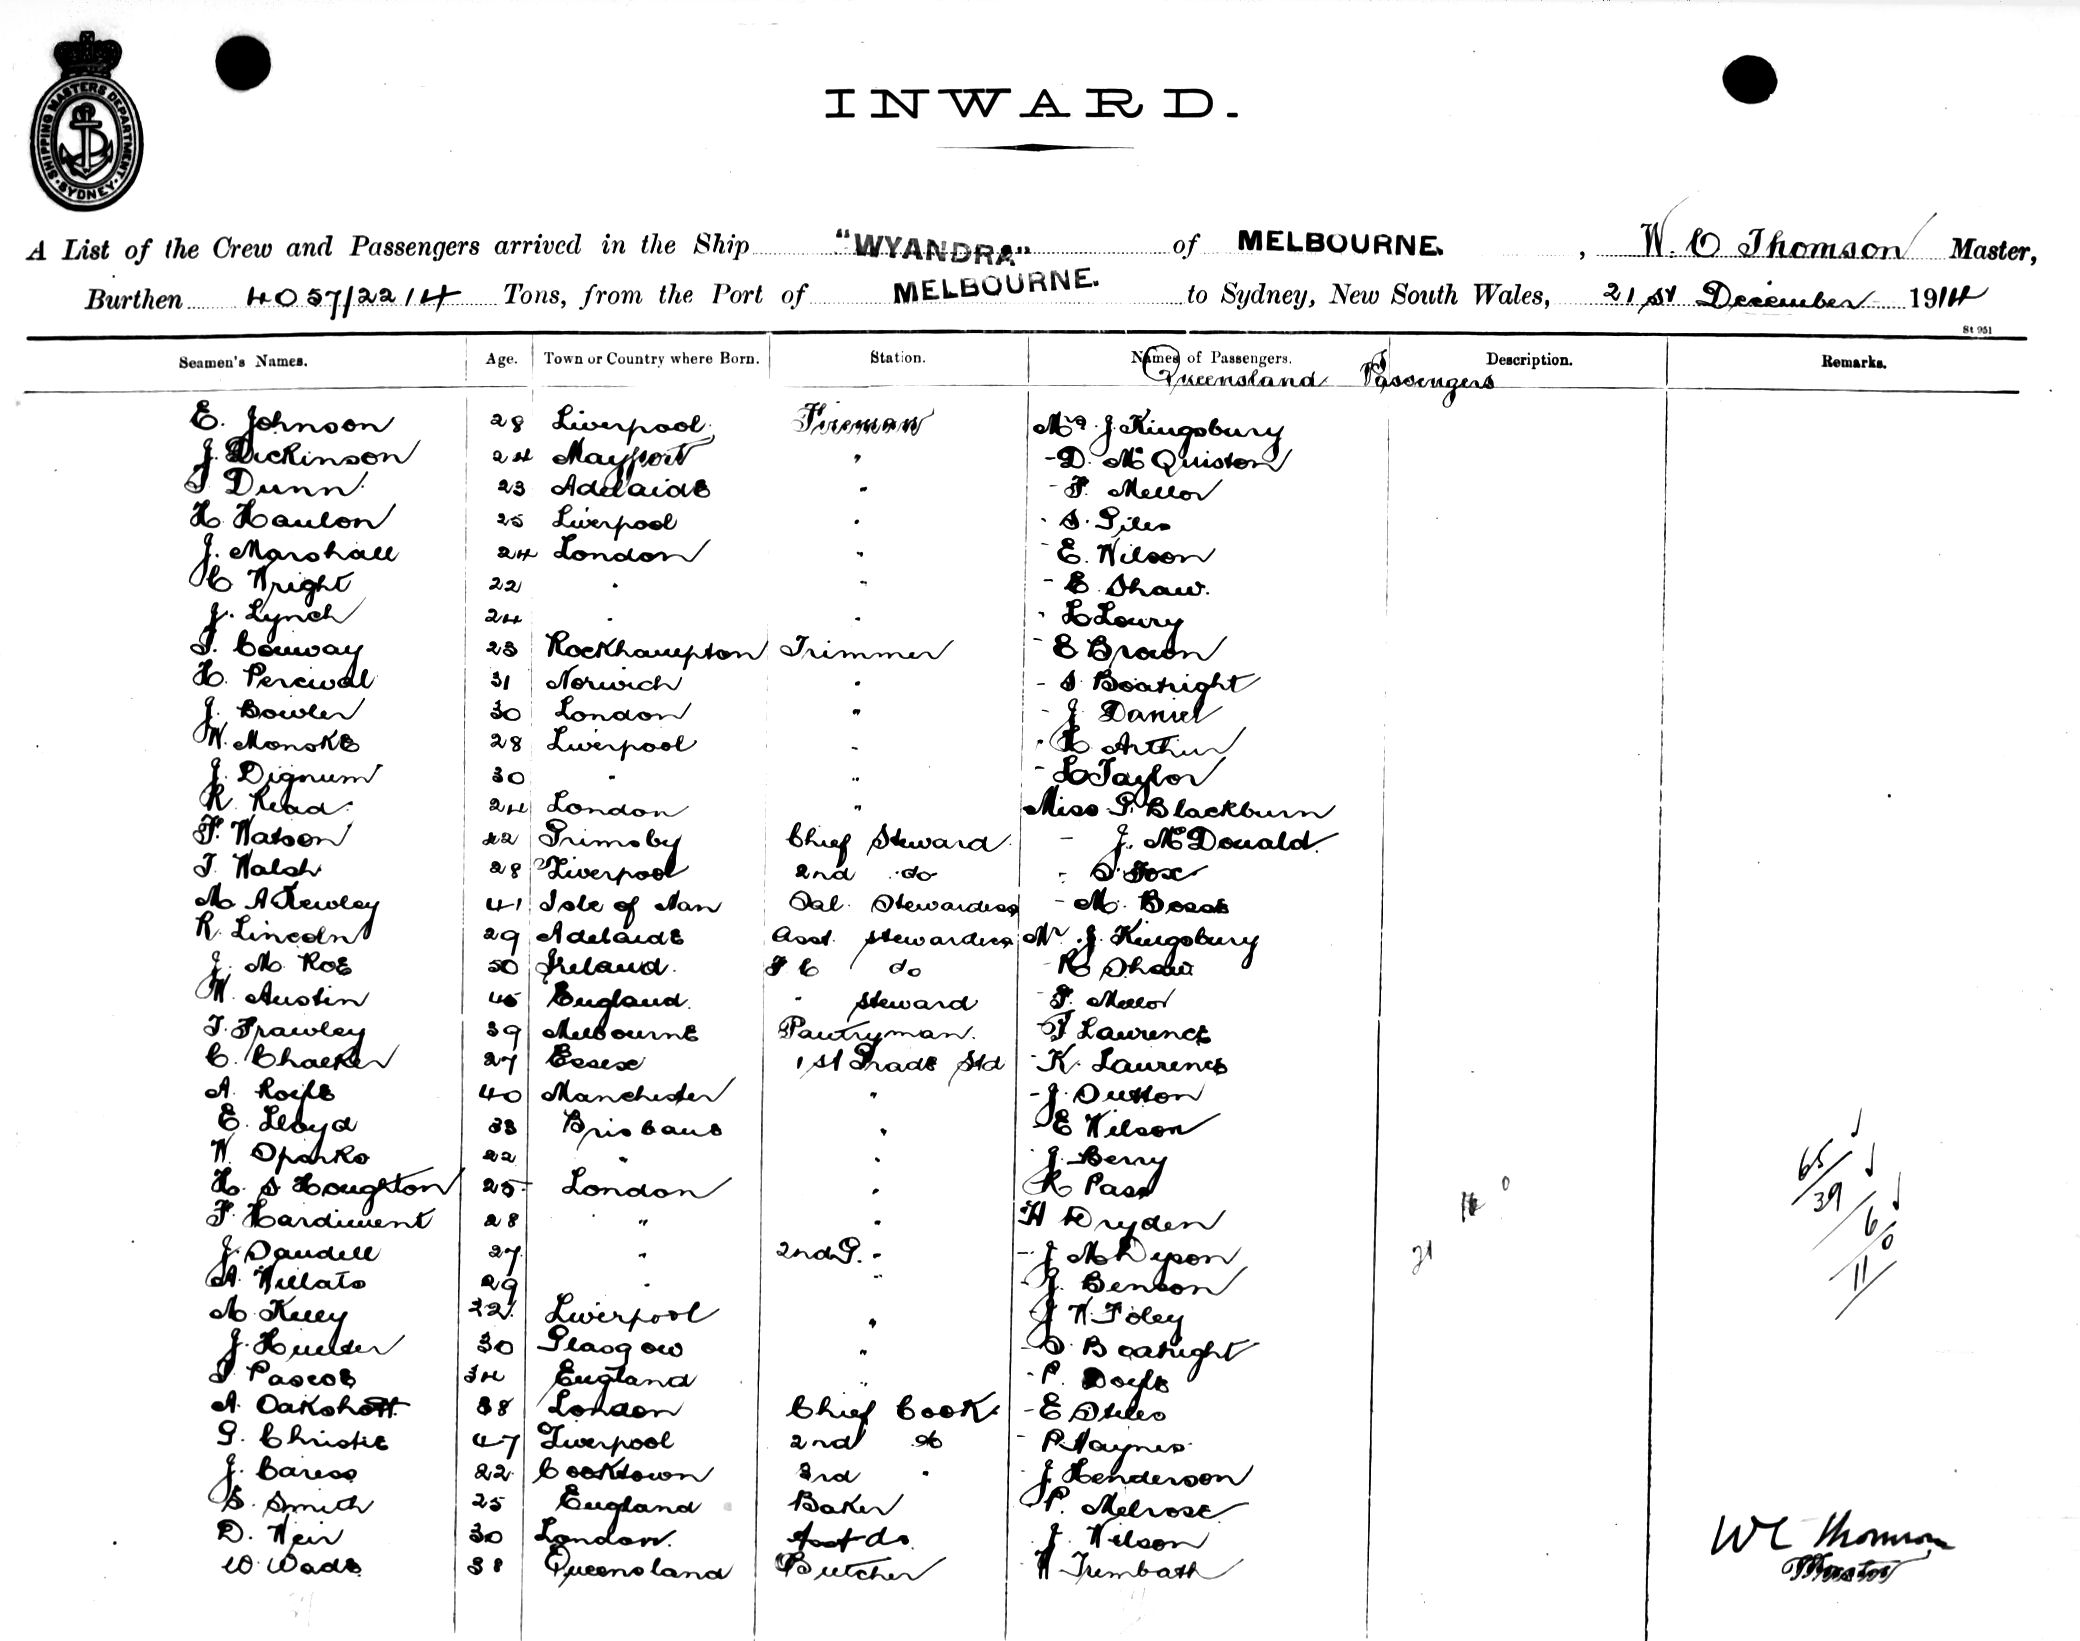 SHIPPING MASTERS DEPARTMENT
SYDNEY
INWARD.
A List of the Crew and Passengers arrived in the Ship "WYANDRA" of MELBOURNE. , W. C Thomson Master,
Burthen 4057/2214 Tons, from the Port of MELBOURNE. to Sydney, New South Wales, 21st December 1914
St 951
Seamen's Names. Age. Town or Country where Born. Station. Names of Passengers. Description. Remarks.
Queensland Passengers
E. Johnson 28 Liverpool Fireman Mrs. J. Kingsbury
J. Dickinson 24 Mayport " - D. McQuiston
Dunn 23 Adelaide " - F. Mellor
H. Hanlon 25 Liverpool " - S. Giles
J. Marshall 24 London " - E. Wilson
C Wright 22 " " - E Shaw.
J. Lynch 24 " " - L Lowry
T. Conway 23 Rockhampton Trimmer - E Brown
H. Percival 31 Norwich " - S Boatright
J. Bowler 30 London " - J Daniel
W. Monske 28 Liverpool " - H Arthur
J. Dignum 30 " " - L Taylor
R. Read. 24 London " Miss G. Blackburn
F. Watson 42 Grimsby Chief Steward - J. McDonald.
T. Walsh 28 Liverpool 2nd do - S Fox
M A Kewley 41 Isle of Man Sal. Stewardess - M.
R. Lincoln 29 Adelaide Asst. Stewardess Mr. J. Kingsbury
J. M. Roe 50 Ireland. F C do - R Shaw
W. Austin 45 England. " Steward - F. Mellor
T. Frawley 39 Melbourne Pantryman. - F Lawrence
C. Chalker 27 Essex 1st Grade Std - K. Laurence
A. Royle 40 Manchester " - J. Dutton
E. Lloyd 33 Brisbane " - E Wilson
W Sparks 22 " " - J. Berry
H. S Houghton 25 London " - R Pass
F. Hardiment 28 " " H Dryden
J. Dandell 27 " 2nd G. " - J McDyson
A. Willats 29 " " - J. Benson
M. Kelly 32 Liverpool " - J W Foley
J. Hunter 30 Glasgow " - S. Boatright
Pascoe 34 England " - P. Doyle
A. Oakshott 38 London Chief Cook - E Stiles
G. Christie 47 Liverpool 2nd do - P. Haynes
J. Caress 22 Cooktown 3rd " - J Henderson
S. Smith 25 England Baker - P. Melrose
D. Weir 30 London. Asst do J. Wilson
W. Wade 38 Queensland Butcher W Trembath
65/39/6/11/0
21
WC Thomson
Master